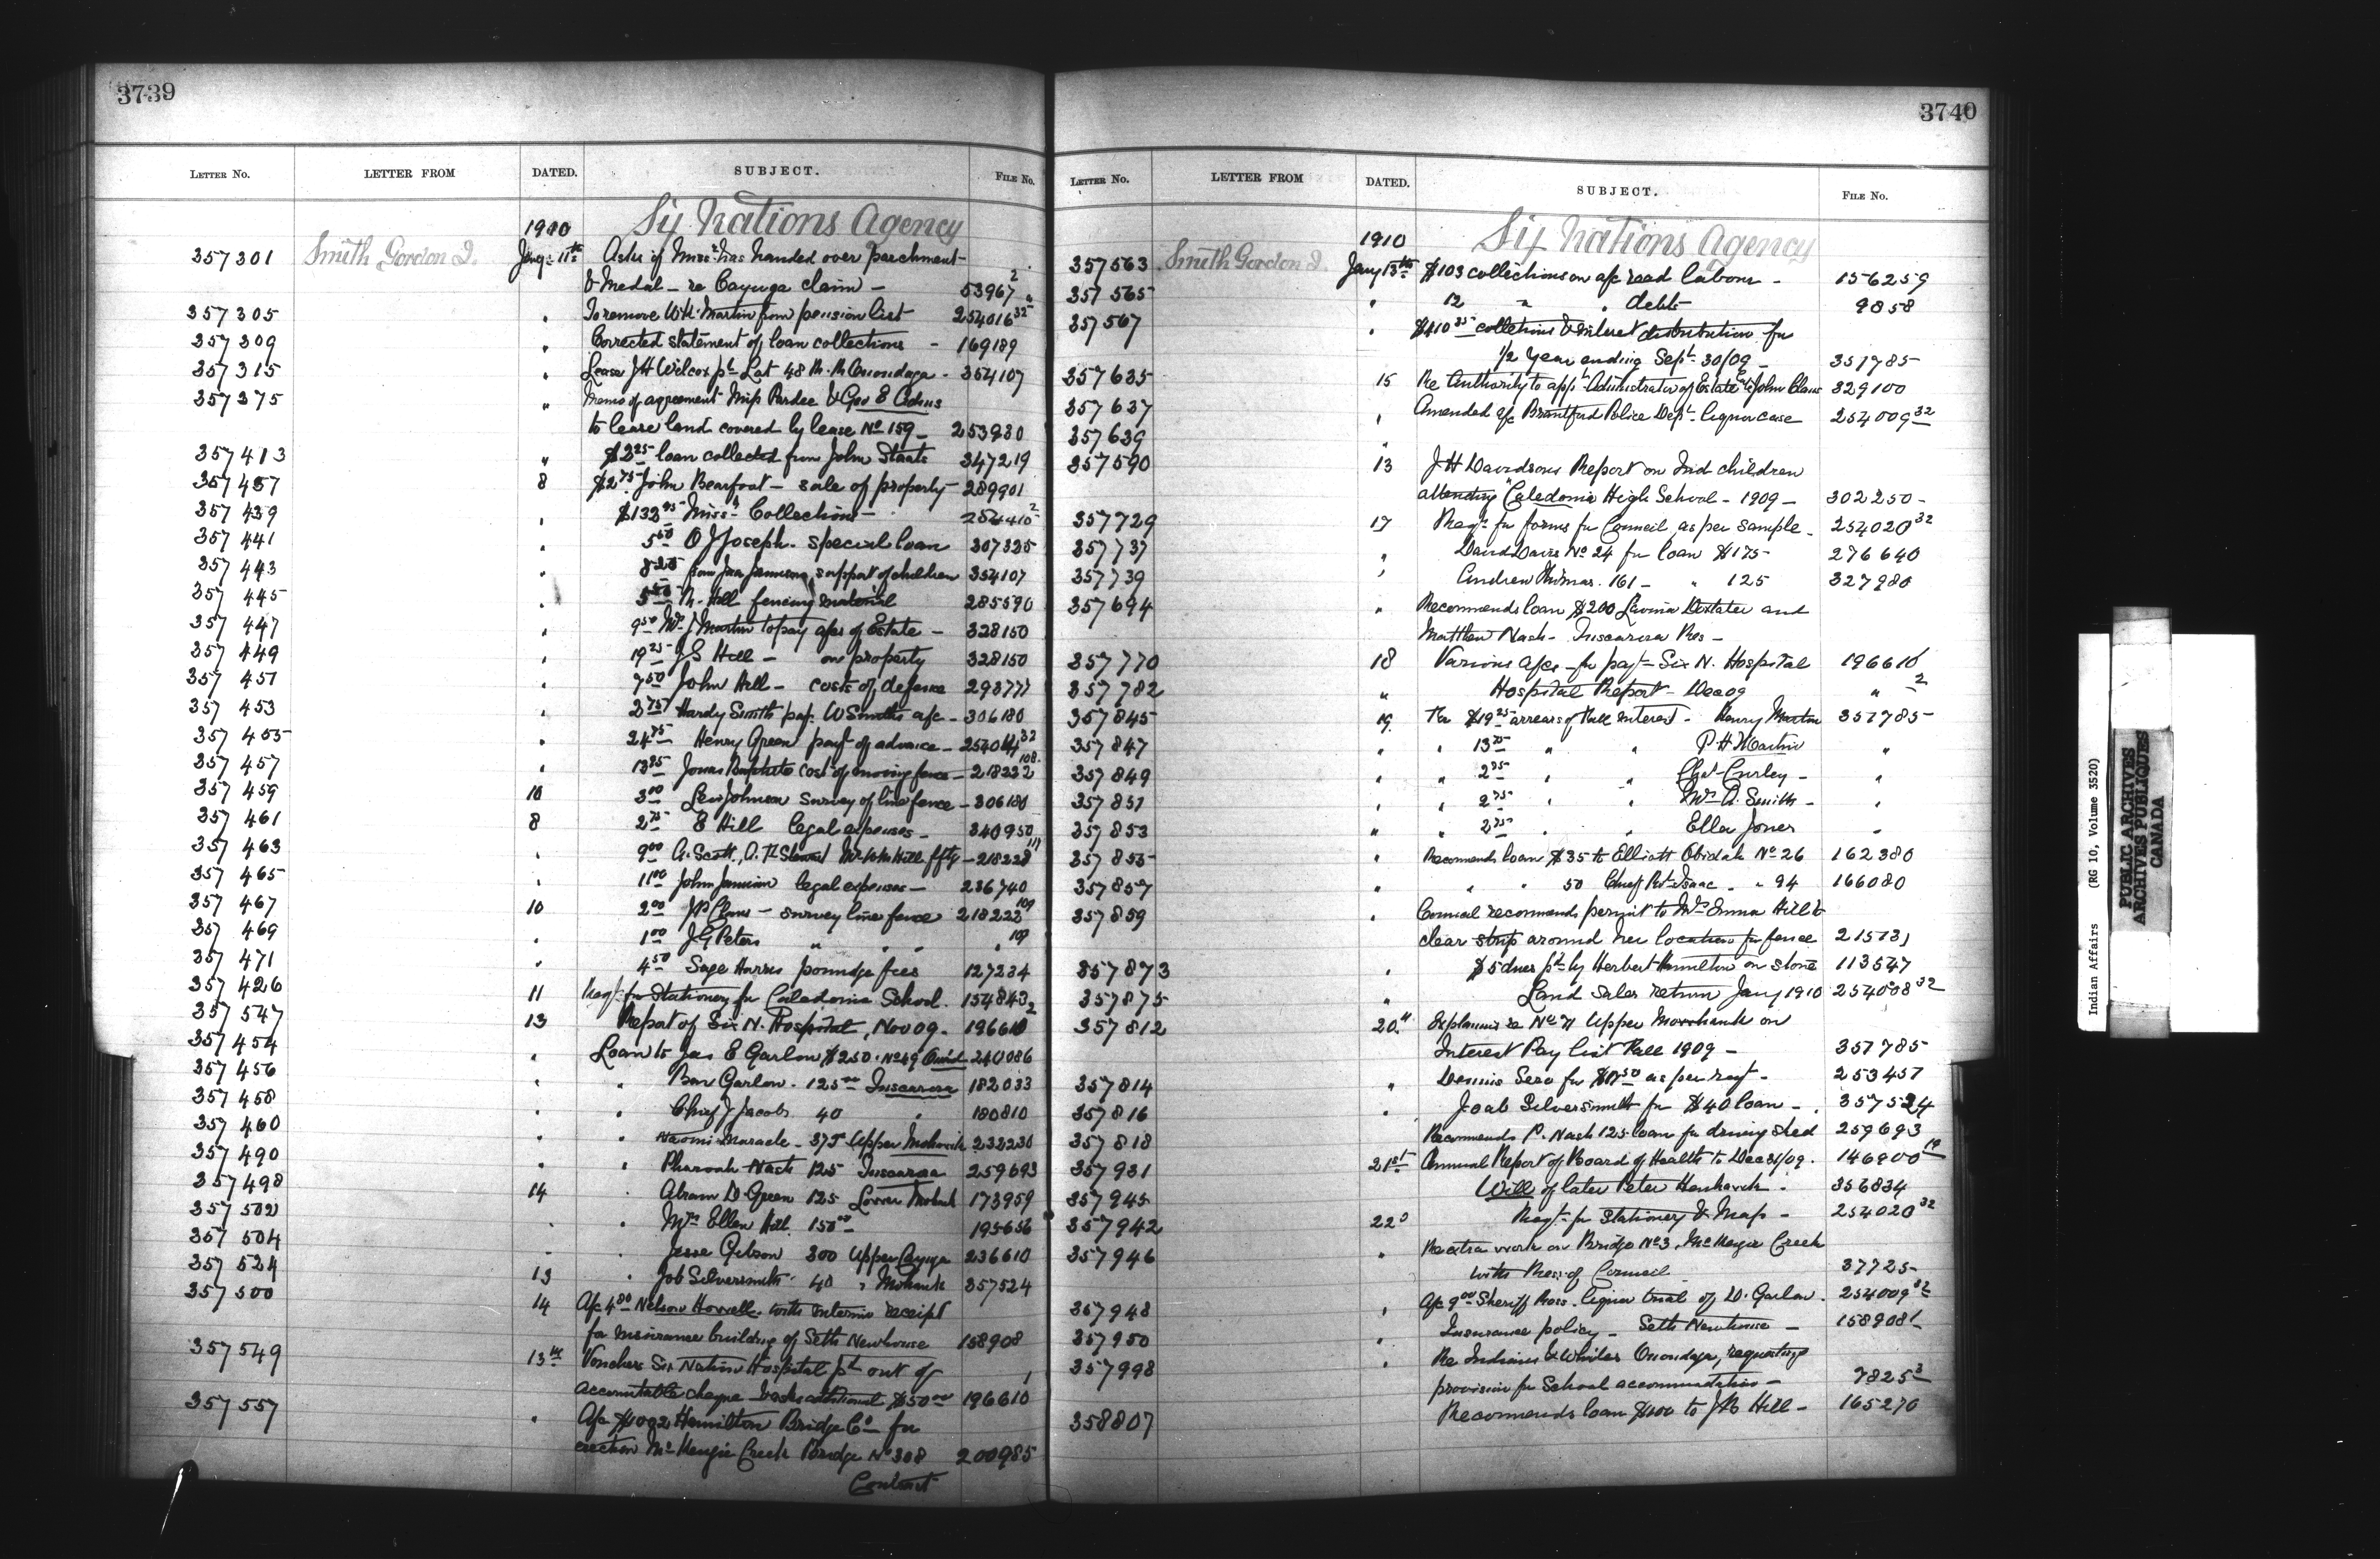 3739
LETTER No. LETTER FROM DATED. SUBJECT. FILE No.
1910 Six Nations Agency
357301 Smith Gordon J. Jany 11th Asks if Miss. has handed over parchment
& Medal - re Cayuga claim - 53967 2
357305 " To remove W.H. Martin from pension list 254016 32
357309 " Corrected statement of loan collections - 169189
357315 " Lease J H Wilcox pt Lot 48 Onondaga - 354107
357375 " Memo of agreement Miss Pardee & Geo E Adms
to lease land covered by lease No 159 - 253980
357413 " $3 25 loan collected from John Staats 347219
357437 8 $2 75 John Bearfoot - sale of property - 289901
357439 " $133 95 Misss Collections - 254410 2
357441 " 5 50 O J Joseph. special loan 307335
357443 " 8 25 from Jas Jamieson, support of children 354107
357445 " 5 50 Hill fencing material 285590
357447 " 9 50 J Martin to pay a/cs of Estate - 328150
357449 " 19 25 J S Hill - on property 328150
357451 " 7 50 John Hill - costs of defence 29377
357453 " 2 75 Hardy Smith pay. W Smiths a/c - 306180
357455 " 24 75 Henry Green payt of advance - 254014 32
357457 " 13 85 Jonas Baptiste cost of moving fence - 218222 108
357459 10 3 00 Levi Johnson survey of line fence - 306180
357461 8 2 75 E Hill legal expenses - 340950
357463 " 9 00 A. Scott, 218228 111
357465 " 11 00 John Jamison legal expenses - 236740
357467 10 2 00 J P Claus - survey line fence 218223 109
357469 " 1 00 J G Peters " " " " 109
357471 " 4 50 Sage Harris poundge fees 127234
357426 11 Reqt for Stationery for Caledonia School. 154843
357547 13 Report of Six N. Hospital, Nov 09. 196610 2
357454 " Loan to Jas E Garlow $250. No 49 Onond 240086
357456 " " Ben Garlow. 125 00 Tuscarora 182033
357458 " " Chief J Jacobs 40 " 180810
357460 " " Naomi Maracle - 375 Upper Mohawk 232230
357490 " " Pharoah Nash 125 Tuscarora 259693
357498 14 " Abram D. Green 125 Lower Mohawk 173959
357502 " " Mrs Ellen Hill 150 00 195656
357504 " " Jesse Gibson 300 Upper Cayuga 236610
357524 13 " Job Silversmith 40 " Mohawk 357524
357500 14 A/c 4 80 Nelson Howell. with interim receipt
for insurance building of Seth Newhouse 158908
357549 13th Vouchers Six Nation Hospital pd out of
accountable cheque & asks additional $50 00 196610
357557 " A/c $1092 Hamilton Bridge Co for
erection McKenzie Creek Bridge No 308 200985
Contract
3740
LETTER No. LETTER FROM DATED. SUBJECT. FILE No.
1910 Six Nations Agency
357563 Smith Gordon J. Jany 13th $103 collections on a/c road labour - 156259
357565 " 12 " " debts 9858
357567 " $410 35 collections & interest distribution for
1/2 Year ending Sept 30/09 - 351785
357635 15 Re Authority to appt Administrator of Estate John Claus 329100
357637 " Amended a/c Brantford Police Dept. liquor case 254009 32
357639 "
357590 13 J H Davidsons Report on Ind children
attending Caledonia High School - 1909 - 302250
357729 17 Reqt for forms for Council, as per sample - 254020 32
357737 " David Davis No 24 for loan $175 - 276640
357739 " Andrew Thomas. 161 - " 125 327980
357694 " Recommends loan $200 Lavina Doxtater and
Matthew Nash - Tuscarora Res -
357770 18 Various a/cs - for payt - Six N. Hospital 196610
357782 " Hospital Report - Dec 09 " 2
357845 19 Re $19 25 arrears of Fall interest - Henry Martin 357785
357847 " " 13 75 " " P H Martin "
357849 " " 2 75 " " Chas Curley - "
357851 " " 2 75 " " Mrs A. Smith - "
357853 " " 2 75 " " Ella Jones "
357855 " Recomends loan $35 to Elliott Obidah No 26 162380
357857 " " " 50 Chief Rt. Isaac " " 94 166080
357859 " Council recommends permit to Mrs Emma Hill to
clear strip around her location for fence 215731
357873 " $5 dues pd by Herbert Hamilton on stone 113547
357875 " Land Sales return Jany 1910 254008 32
357812 20" Explains re No 71 Upper Mohawk on
Interest Pay list Fall 1909 - 357785
357814 " Dennis Sero for as per reqt - 253457
357816 " Joab Silversmith for $40 loan - 357524
357818 " Recommends P. Nash 125 loan for driving shed 259693
357931 21st Annual Report of Board of Health to Dec 31/09. 146900 19
357945 Will of late Peter 356834
357942 22d Reqt - for Stationery & Map - 254020 32
357946 " Re extra work on Bridge No 3, McKenzie Creek
with Res: of Council 37725
357948 " A/c 9 00 Sheriff Ross. liquor trial of D. Garlow. 254009 32
357950 " Insurance policy - Seth Newhouse - 158908
357998 " Re Indians & Whites Onondaga, requesting
provision for School accommodation - 7825 3
358807 Recommends loan $100 to J R Hill - 165270
Indian Affairs (RG 10, Volume 3520)
PUBLIC ARCHIVES
ARCHIVES PUBLIQUES
CANADA